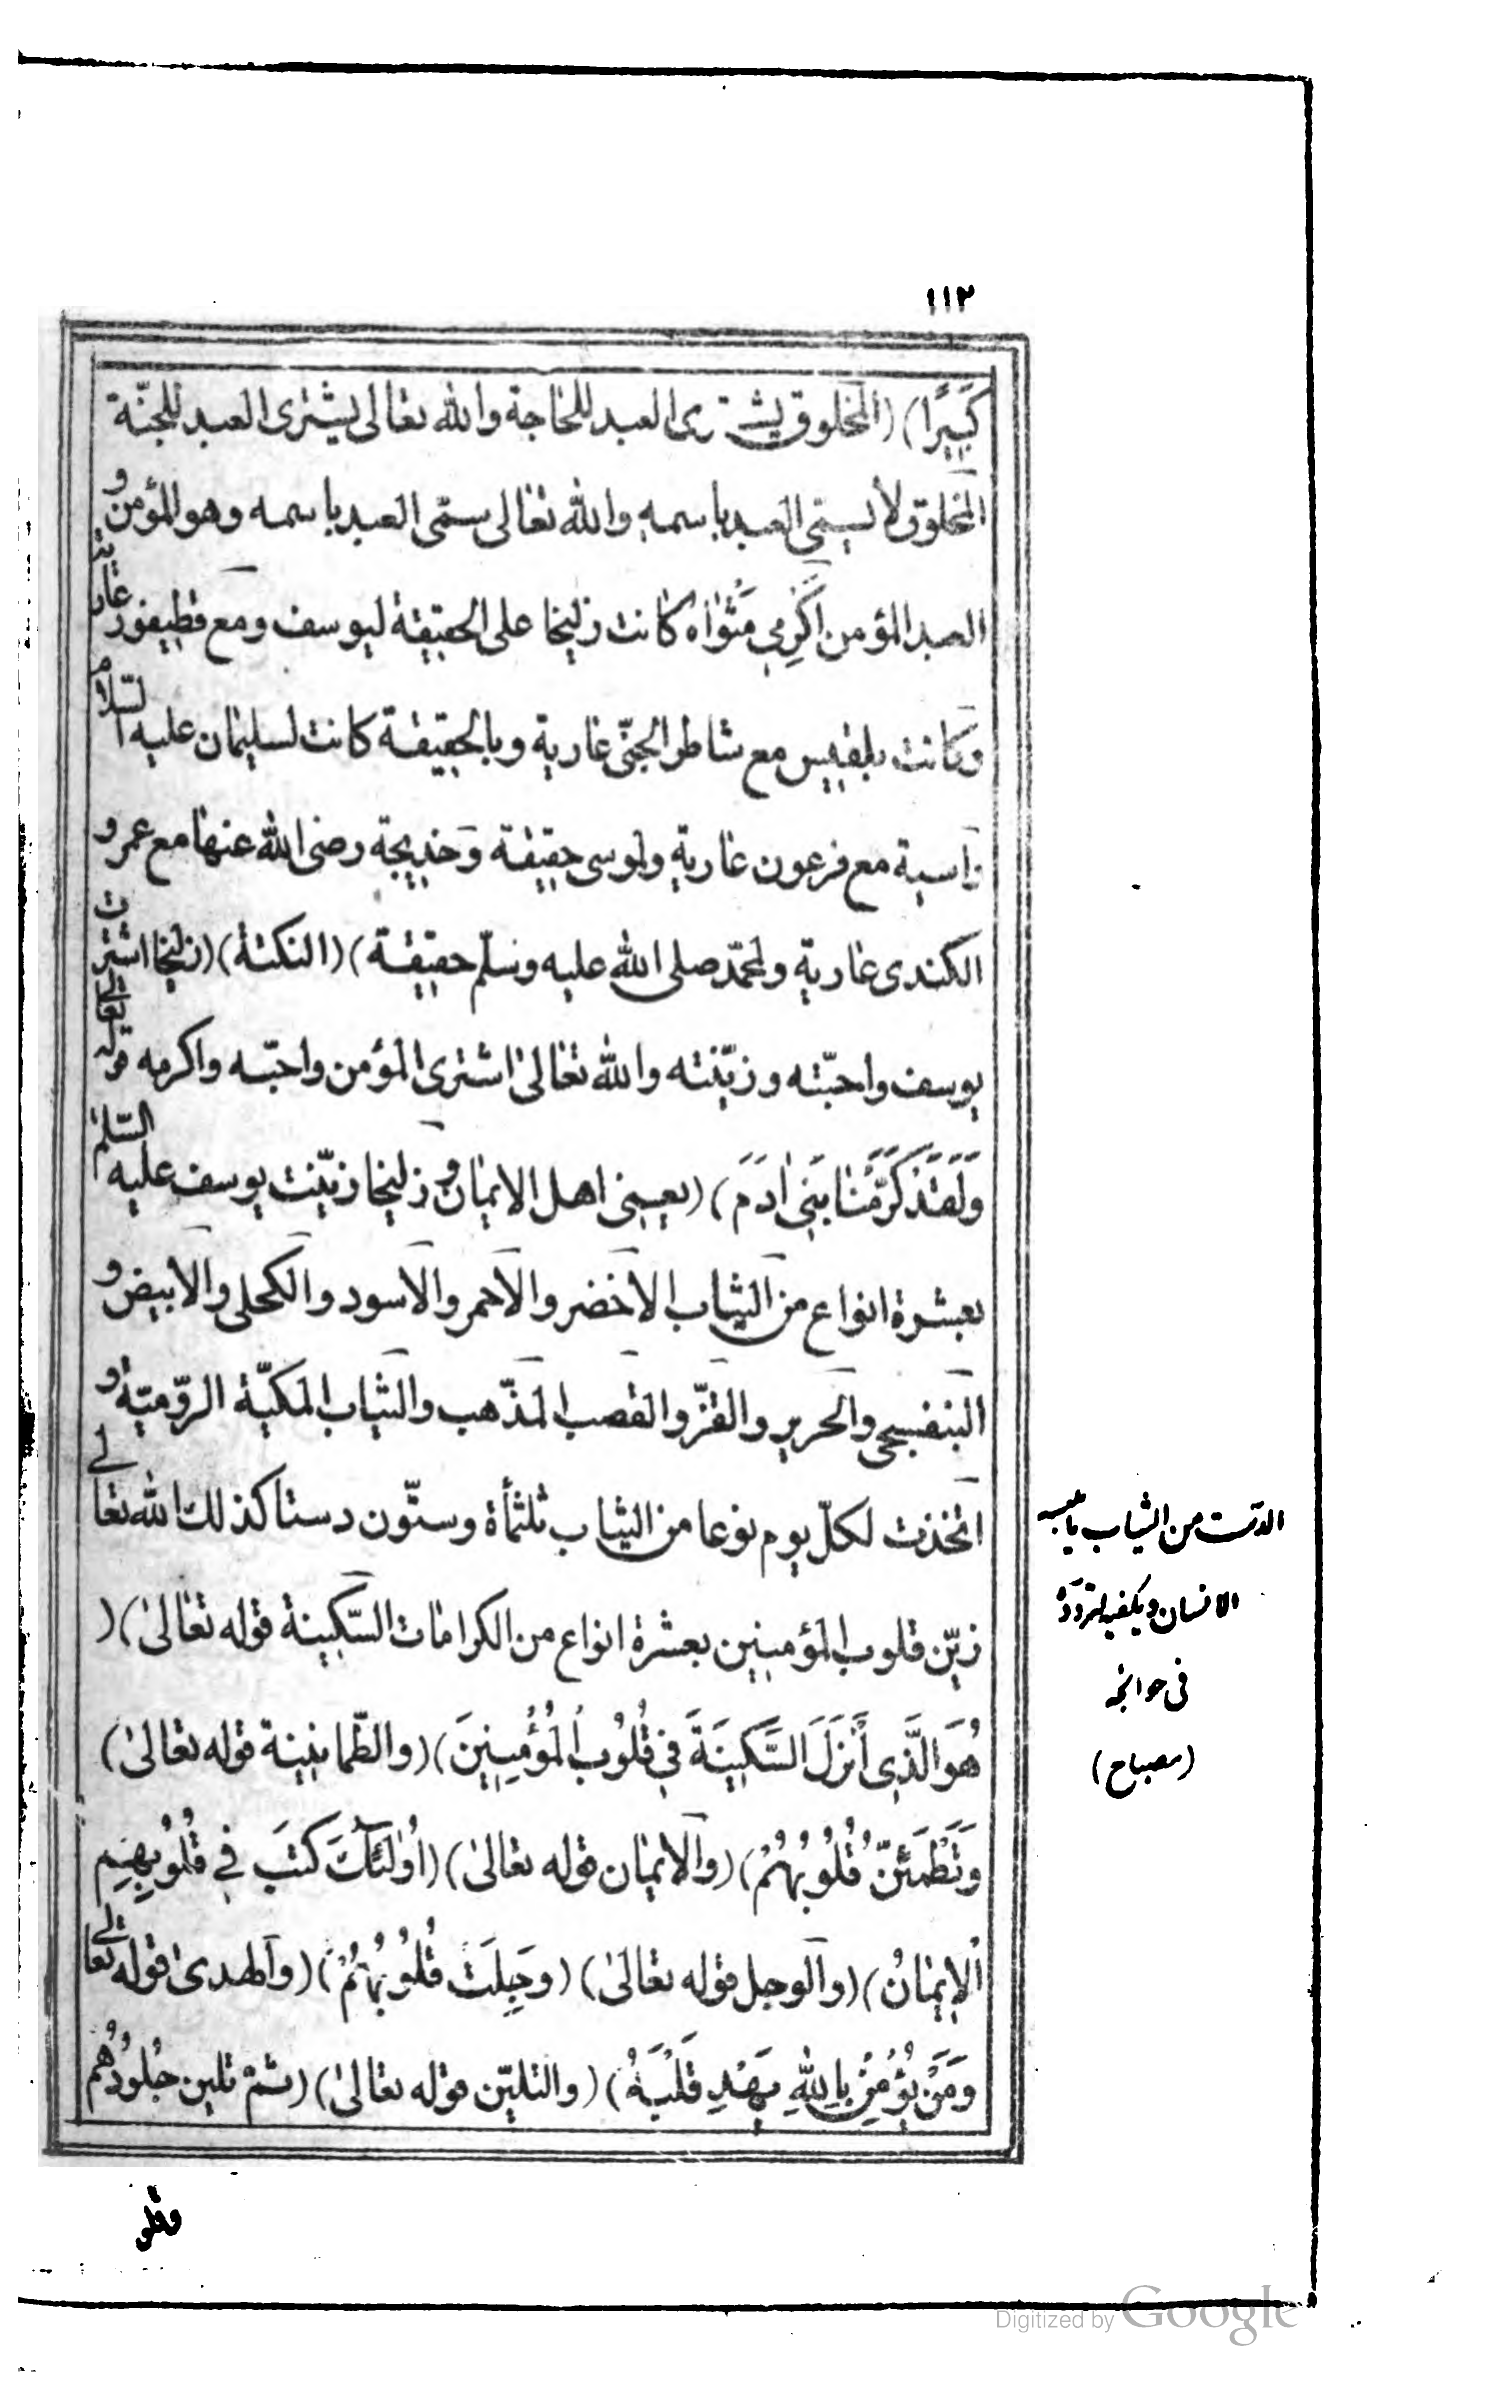 ١١٢
كَبِيرًا) (المخلوق يشترى العبد للحاجة والله تعالى يشترى العبد للجنّة
المخلوق لا يسمّى العبد باسمه والله تعالى سمّى العبد باسمه وهو المؤمن و
العبد المؤمن اَكْرِمِي مَثْوٰاهُ كانت زليخا على الحقيقة ليوسف ومع قطيفور عارية
وكانت بلقيس مع شاطر الجنّى عارية وبالحقيقة كانت لسليمان عليه السّلام
واسية مع فرعون عارية ولموسى حقيقة وخديجة رضى الله عنها مع عمرو
الكندى عارية ولمحمّد صلى الله عليه وسلّم حقيقة) (النكتة) (زليخا اشترت
يوسف واحبّته وزيّنته والله تعالى اشترى المؤمن واحبّه واكرمه قوله تعالى
وَلَقَدْ كَرَّمْنَا بَنِى اٰدَمَ) (يعنى اهل الايمان و زليخا زيّنت يوسف عليه السّلام
بعشرة انواع من الثياب الاخضر والاحمر والاسود والكحلى والابيض و
البنفسجى والحرير والقزّ والقصب المذّهب والثياب المكيّة الرّوميّة و
اتخذت لكلّ يوم نوعا من الثياب ثلثمأة وستّون دستا كذلك الله تعالى
زيّن قلوب المؤمنين بعشرة انواع من الكرامات السّكينة قوله تعالى) (
هُوَ الَّذِى أَنْزَلَ السَّكِينَةَ فِى قُلُوبِ الْمُؤْمِنِينَ) (والطّمانينة قوله تعالى)
وَتَطْمَئِنُّ قُلُوبُهُمْ) (والايمان قوله تعالى) (اُولٰئِكَ كَتَبَ فِى قُلُوبِهِمِ
الْاِيمَانَ) (والوجل قوله تعالى) (وَجِلَتْ قُلُوبُهُمْ) (والهدى قوله تعالى
وَمَنْ يُؤْمِنْ بِاللهِ يَهْدِ قَلْبَهُ) (والتليّن قوله تعالى) (ثُمَّ تلين جُلُودُهُم
الدّست من الثياب ما يلبسه
الانسان ويكفيه لتردّده
فى حوائجه
(مصباح)
وقلو
Digitized by Google